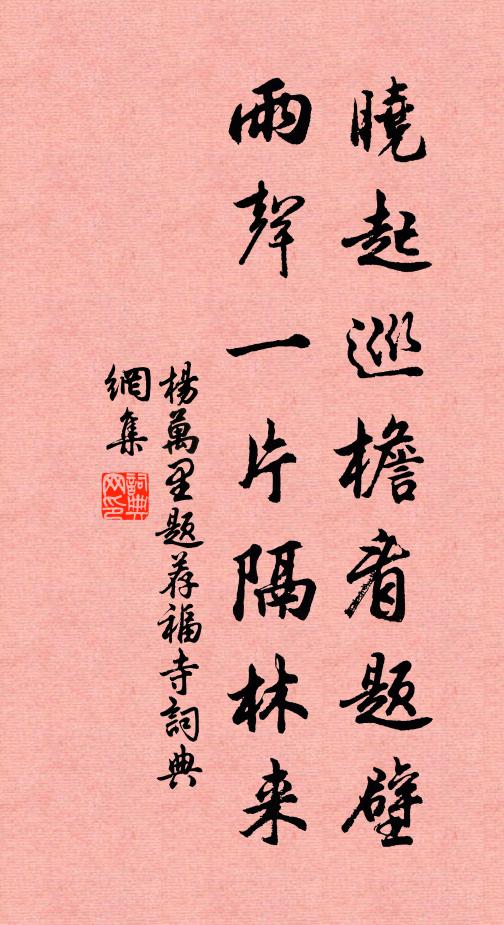 曉起巡檐看題壁
雨聲一片隔林来
楊萬里题荐福寺詞典
網集
詞典
网印